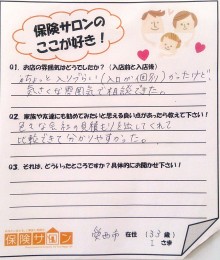 保険サロンの
ここが好き!
Q1. お店の雰囲気はどうでしたか?(入店前と入店後)
ちょっと入りづらい(入口が個別)かったけど
気さくな雰囲気で相談できた。
Q2. 家族や友達にも勧めてみたいと思える良い点があったら教えて下さい!
色々な会社の見積もりを出してくれて
比較できて分かりやすかった。
Q3. それは、どういったところですか?具体的にお聞かせ下さい!
保険サロン
愛西市 在住 (33歳)
I さま